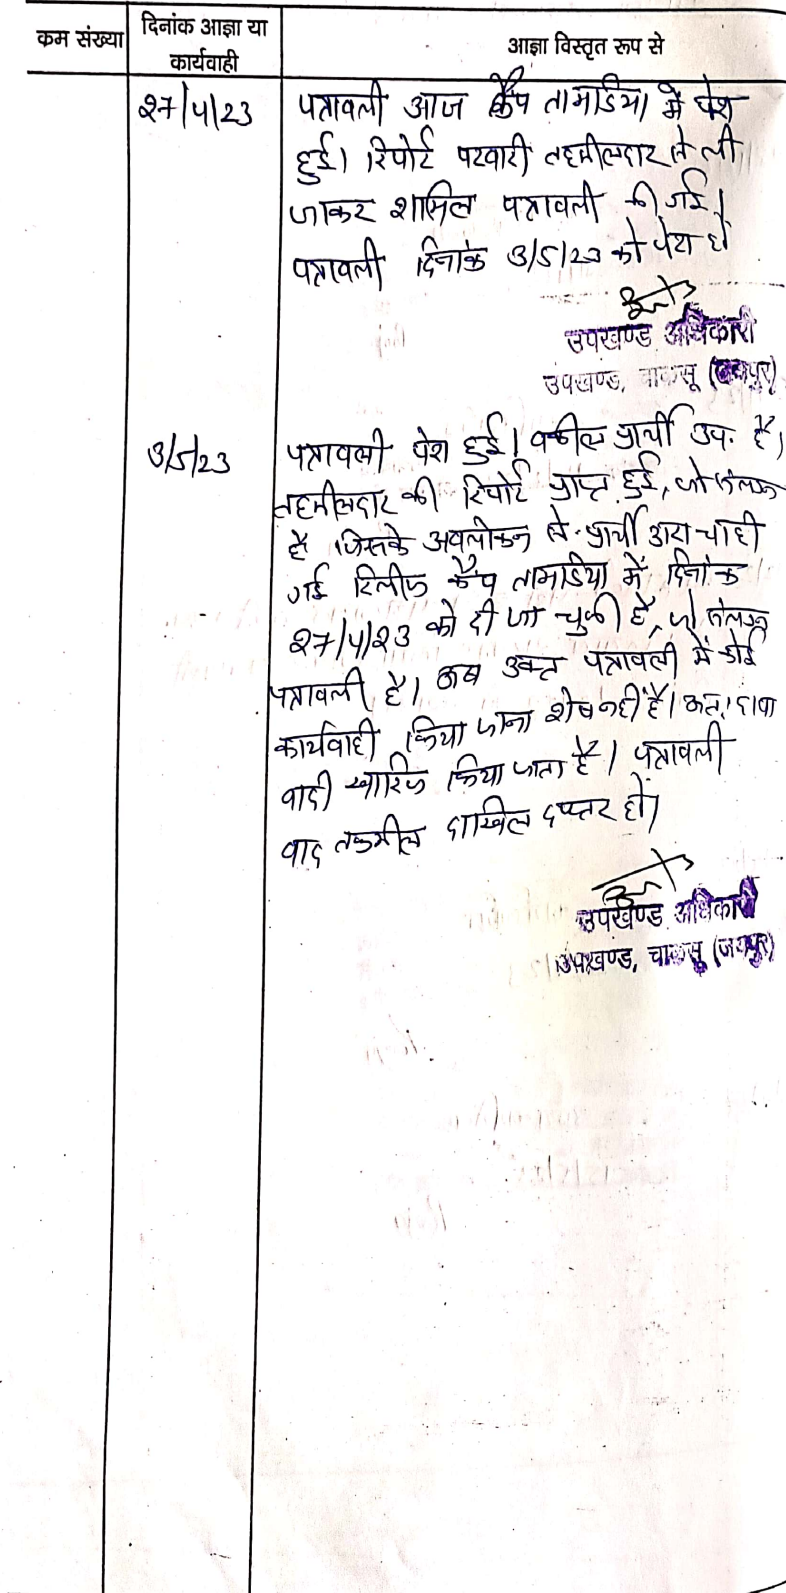 कम संख्या
दिनांक आज्ञा या
कार्यवाही
आज्ञा विस्तृत रूप से
27/4/23
पत्रावली आज कैंप तामडिया में पेश
हुई। रिपोर्ट पटवारी तहसीलदार से ली
जाकर शामिल पत्रावली की गई।
पत्रावली दिनांक 3/5/23 को पेश हो
उपखण्ड अधिकारी
उपखण्ड, चाकसू (जयपुर)
3/5/23
पत्रावली पेश हुई। वकील प्रार्थी उप. है।
तहसीलदार की रिपोर्ट प्राप्त हुई, जो संलग्न
है जिसके अवलोकन से प्रार्थी द्वारा चाही
गई रिलीफ कैंप तामडिया में दिनांक
27/4/23 को दी जा चुकी है, जो संलग्न
पत्रावली है। अब उक्त पत्रावली में कोई
कार्यवाही किया जाना शेष नहीं है। अतः दावा
वादी खारिज किया जाता है। पत्रावली
वाद तकमील दाखिल दफ्तर हो।
उपखण्ड अधिकारी
उपखण्ड, चाकसू (जयपुर)